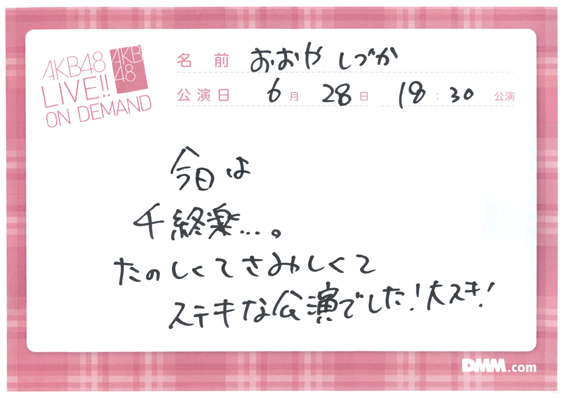 AKB48
LIVE!!
ON DEMAND
AKB
48
名前 おおや しづか
公演日 6月 28日 18:30 公演
今日は
千終楽...。
たのしくてさみしくて
ステキな公演でした!大スキ!
DMM.com